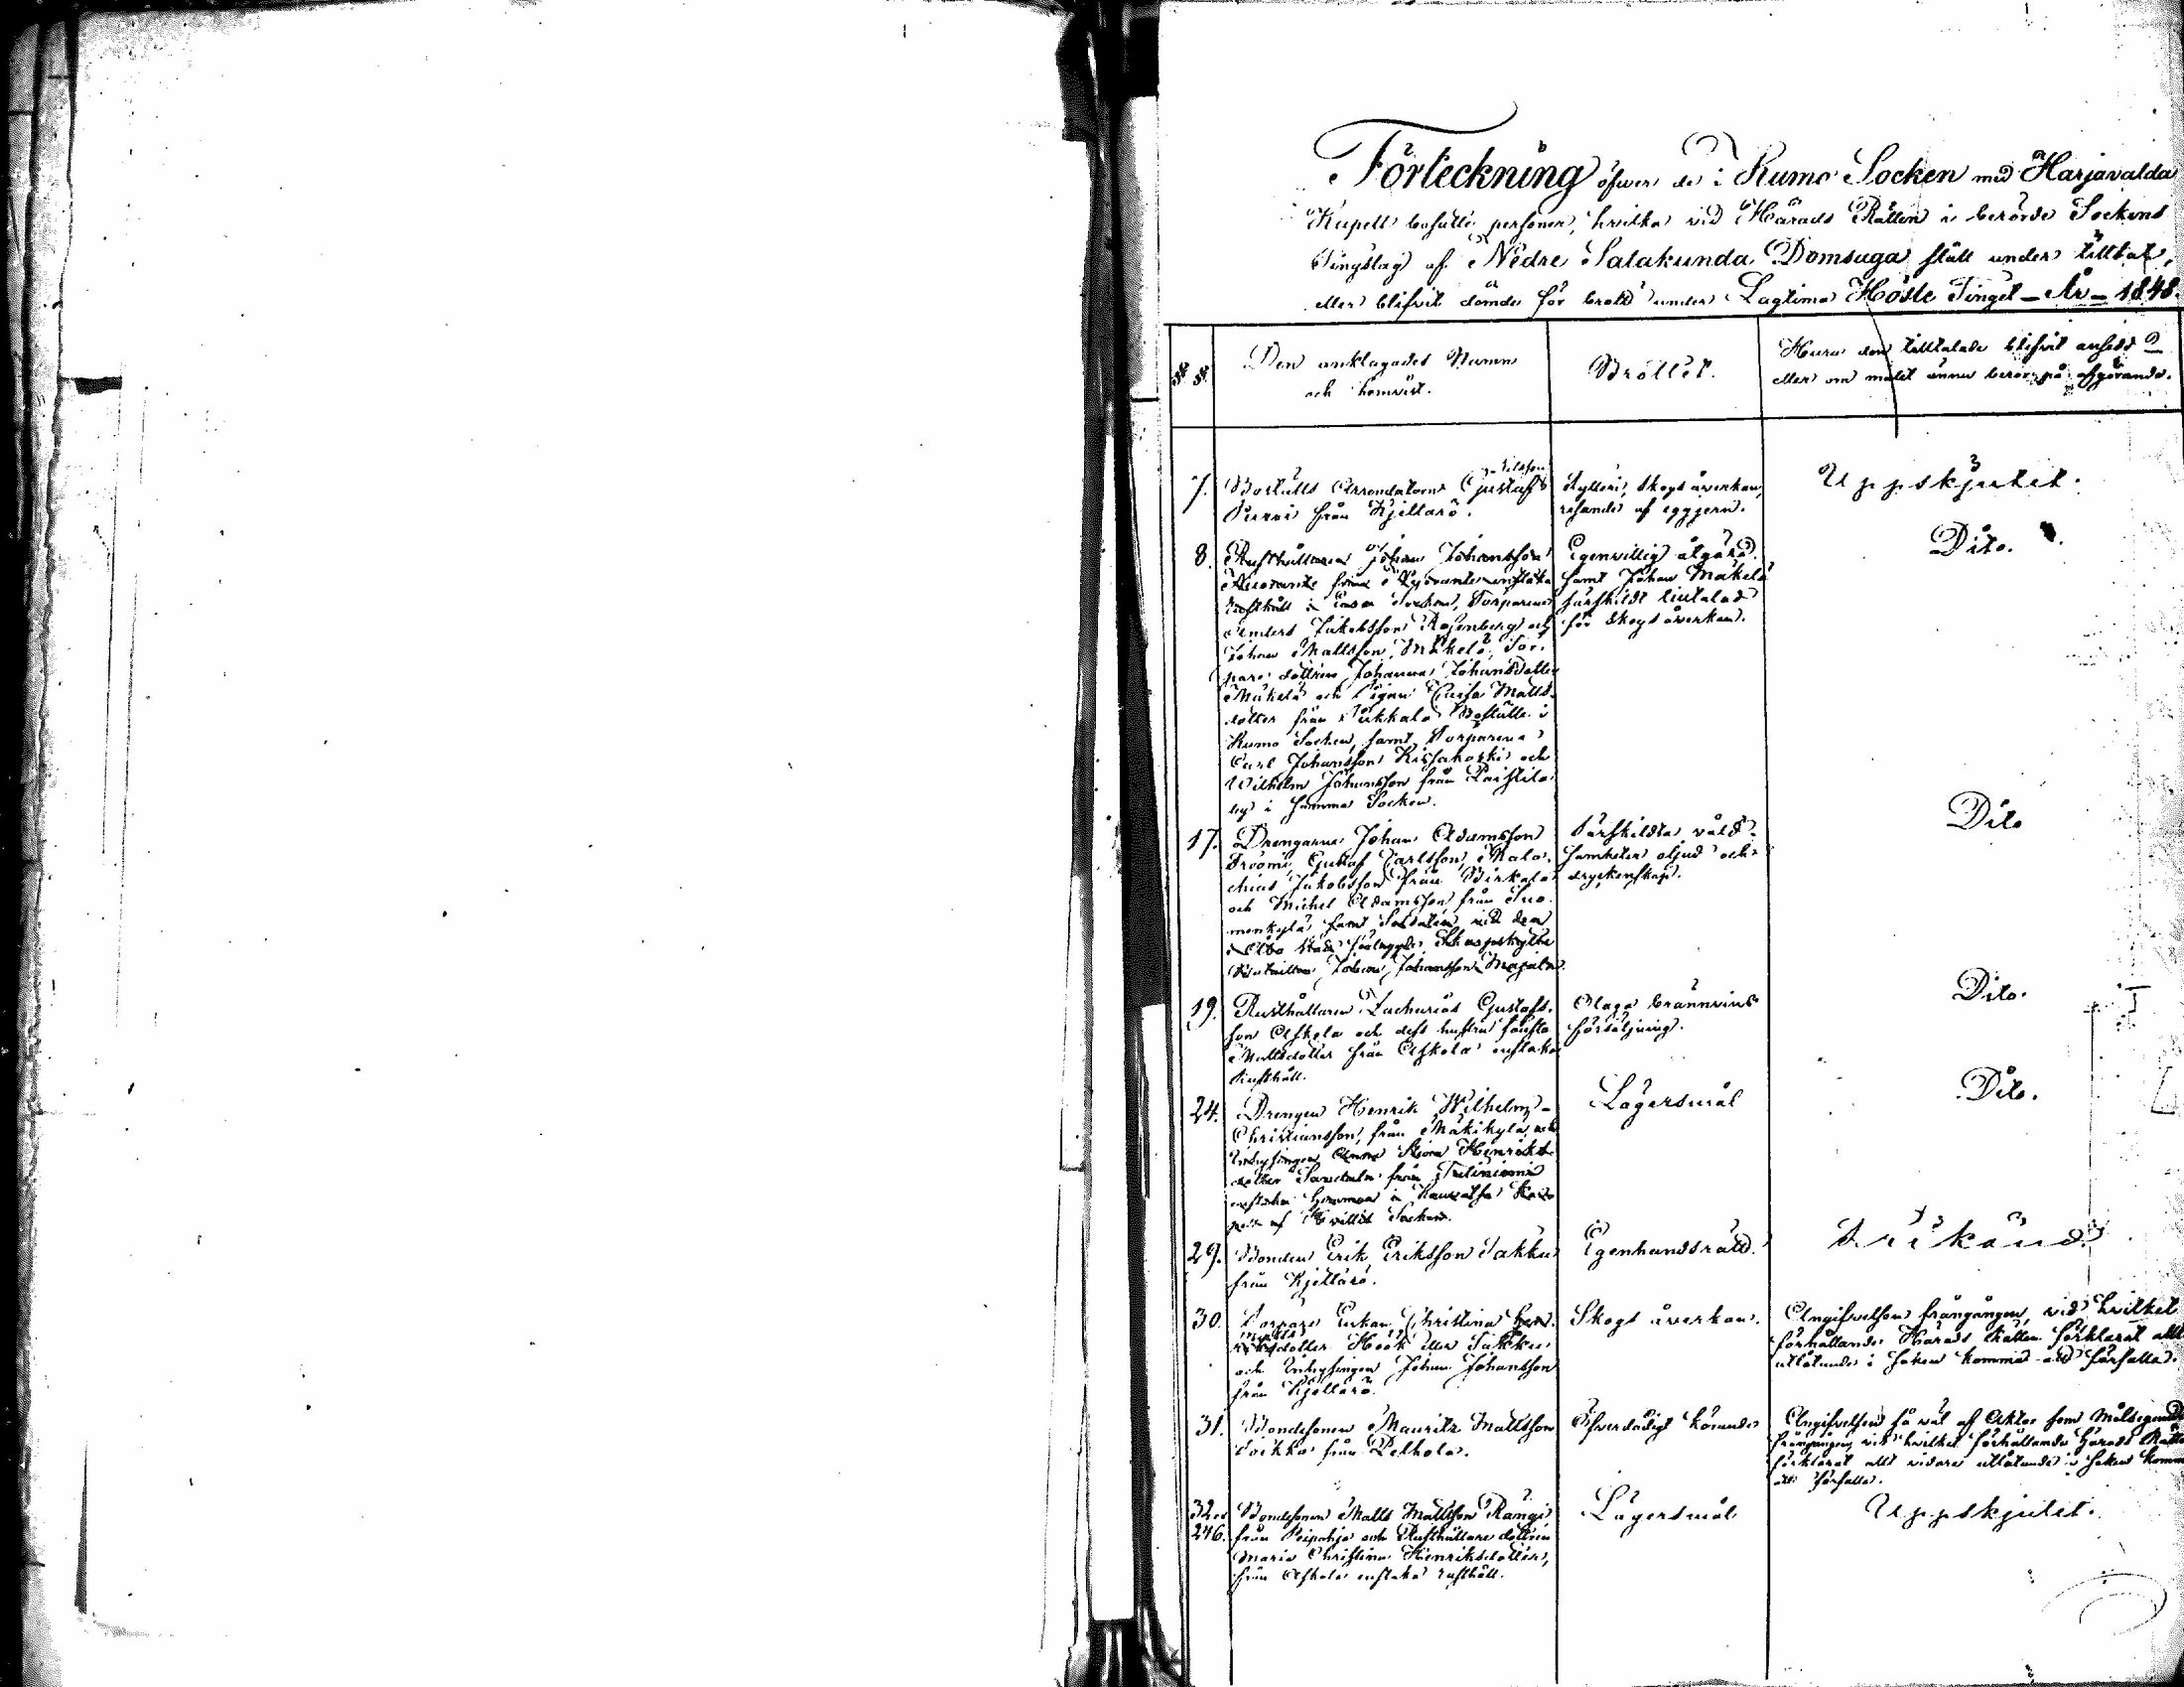 Förteckning öfver de i Kumo Socken med Harjavalda
Kapell bosatte personer, hvilka vid Härads Rätten i berörde Sockens
Tingslag af Nedre Satakunda Domsaga ställ under tilltal,
eller blifvit dömde för brott under Lagtima Höste Tinget – År – 1848.
Den anklagades Namn
och hemvist.
Brottet.
Huru den tilltalade blifvit ansedd
eller om målet ännu beror på afgörande.
7. Boställs Arrendatorn Gustaf
från Kjettärö.
Fylleri, Skogs åverkan,
af eggjern.
Uppskjutet.
8. Rusthållaren Johan Johansson
från enstaka
Rusthåll i Socken, Torparene
Anders Jakobsson Rosenberg och
Johan Mattsson Mäkelä, Tor-
pare dottren Johanna Johansdotter
Mäkelä och Pigan Caisa Matts-
dotter från Boställe i
Kumo Socken, samt Torparena
Carl Johansson och
Wilhelm Johansson från
by i samma Socken.
Egenvillig åtgärd
samt Johan Mäkelä
särskildt tilltalad
för Skogs åverkan.
Dito.
17. Drengarne Johan Adamsson
Gustaf Carlsson, Mala-
chias Jakobsson från
och Michel Adamsson från Suo-
menkylä samt Soldaten vid den
i Åbo förlagde Skarpskytte
Bataillon Johan Johansson
Särskildta vålds-
samheter oljud och
dryckenskap.
Dito
19. Rusthållaren Zacharias Gustafs-
son Askola och dess hustru
Mattsdotter från Askola enstaka
Rusthåll.
Olaga brännvins
försäljning.
Dito.
24. Drengen Henrik Wilhelm
Christiansson, från Mäkikylä och
Inhysingen Anna Henriks-
dotter från
enstaka hemman i Kauvatsa Ka-
pell af Hvittis Socken.
Lägersmål
Dito.
29. Bonden Erik Eriksson Takku
från Kjettärö.
Egenhandsrätt.
Frikänd.
30. Torpare Enkan Christina
Höök eller Takku
och Inhysingen Johan Johansson
från Kjettärö.
Skogs åverkan.
Angifvelsen frångången, vid hvilket
förhållande Härads Rätten förklarat allt
utlåtande i saken komma att förfalla.
31. Bondesonen Mauritz Mattsson
från
Öfverdådigt körande
Angifvelsen så väl af Aktor som Målsegande
frångången, vid hvilket förhållande Härads Rätten
förklarat allt vidare utlåtande i saken komma
att förfalla.
32 o
246. Bondesonen Matts Mattsson
från Peipohja och Rusthållare dottren
Maria Christina Henriksdotter,
från Askola enstaka rusthåll.
Lägersmål
Uppskjutet.